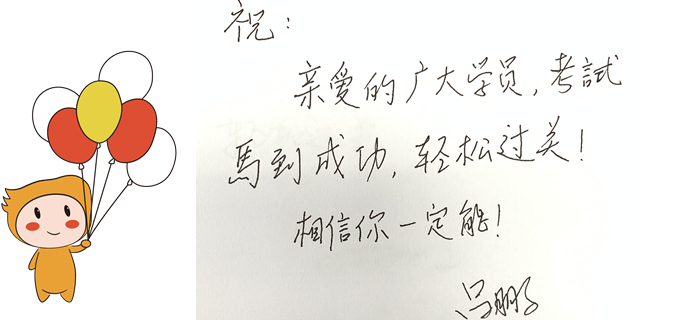 祝：
亲爱的广大学员，考試
馬到成功，轻松过关！
相信你一定能！
吕鹏